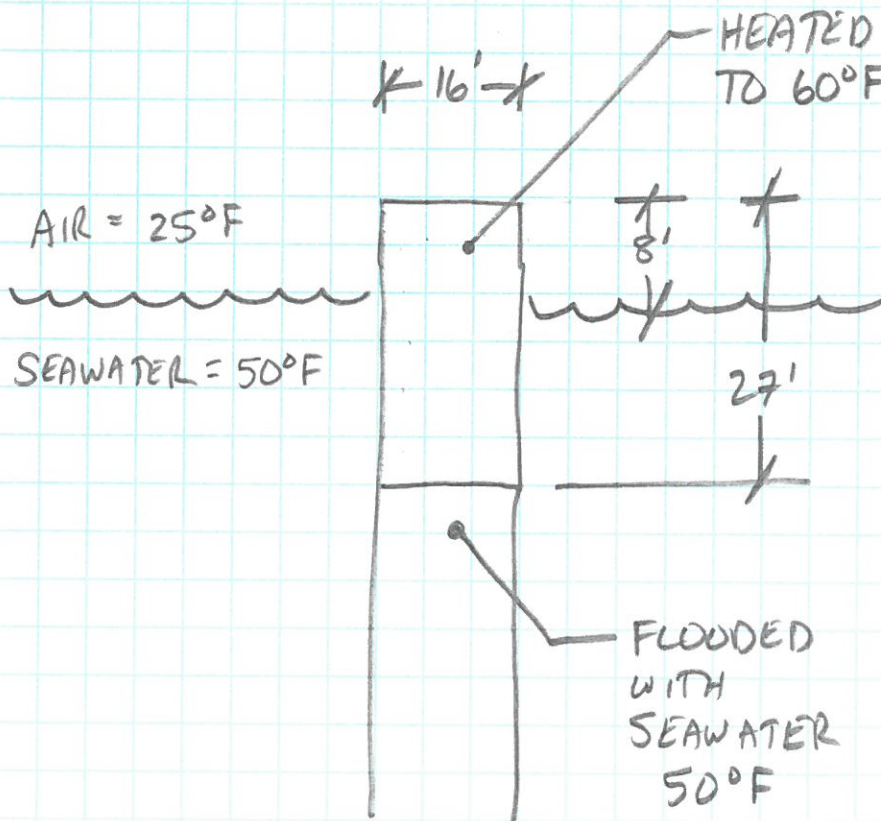 HEATED
TO 60°F
16'
AIR = 25°F
8'
SEAWATER = 50°F
27'
FLOODED
WITH
SEAWATER
50°F